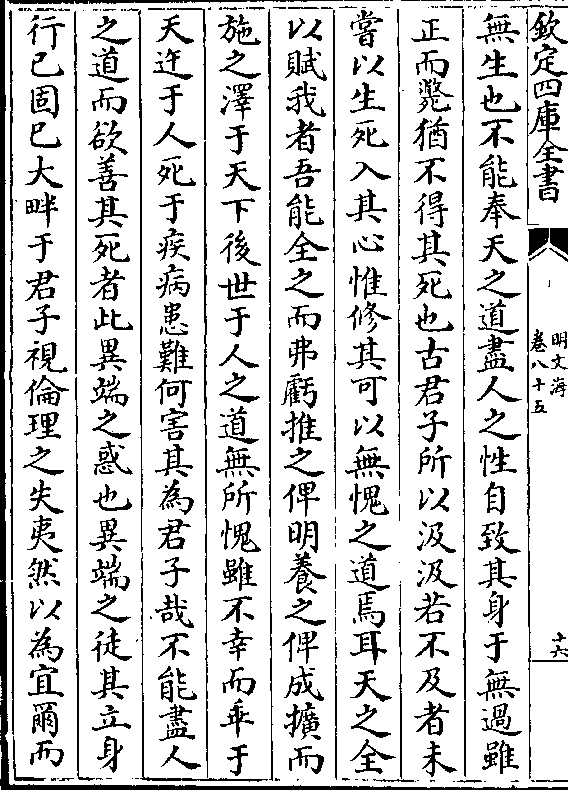 欽定四庫全書
明文海
卷八十五
十六
無生也不能奉天之道盡人之性自致其身于無過雖
正而斃猶不得其死也古君子所以汲汲若不及者未
嘗以生死入其心惟修其可以無愧之道焉耳天之全
以賦我者吾能全之而弗虧推之俾明養之俾成擴而
施之澤于天下後世于人之道無所愧雖不幸而乖于
天迕于人死于疾病患難何害其為君子哉不能盡人
之道而欲善其死者此異端之惑也異端之徒其立身
行已固已大畔于君子視倫理之失夷然以為宜爾而